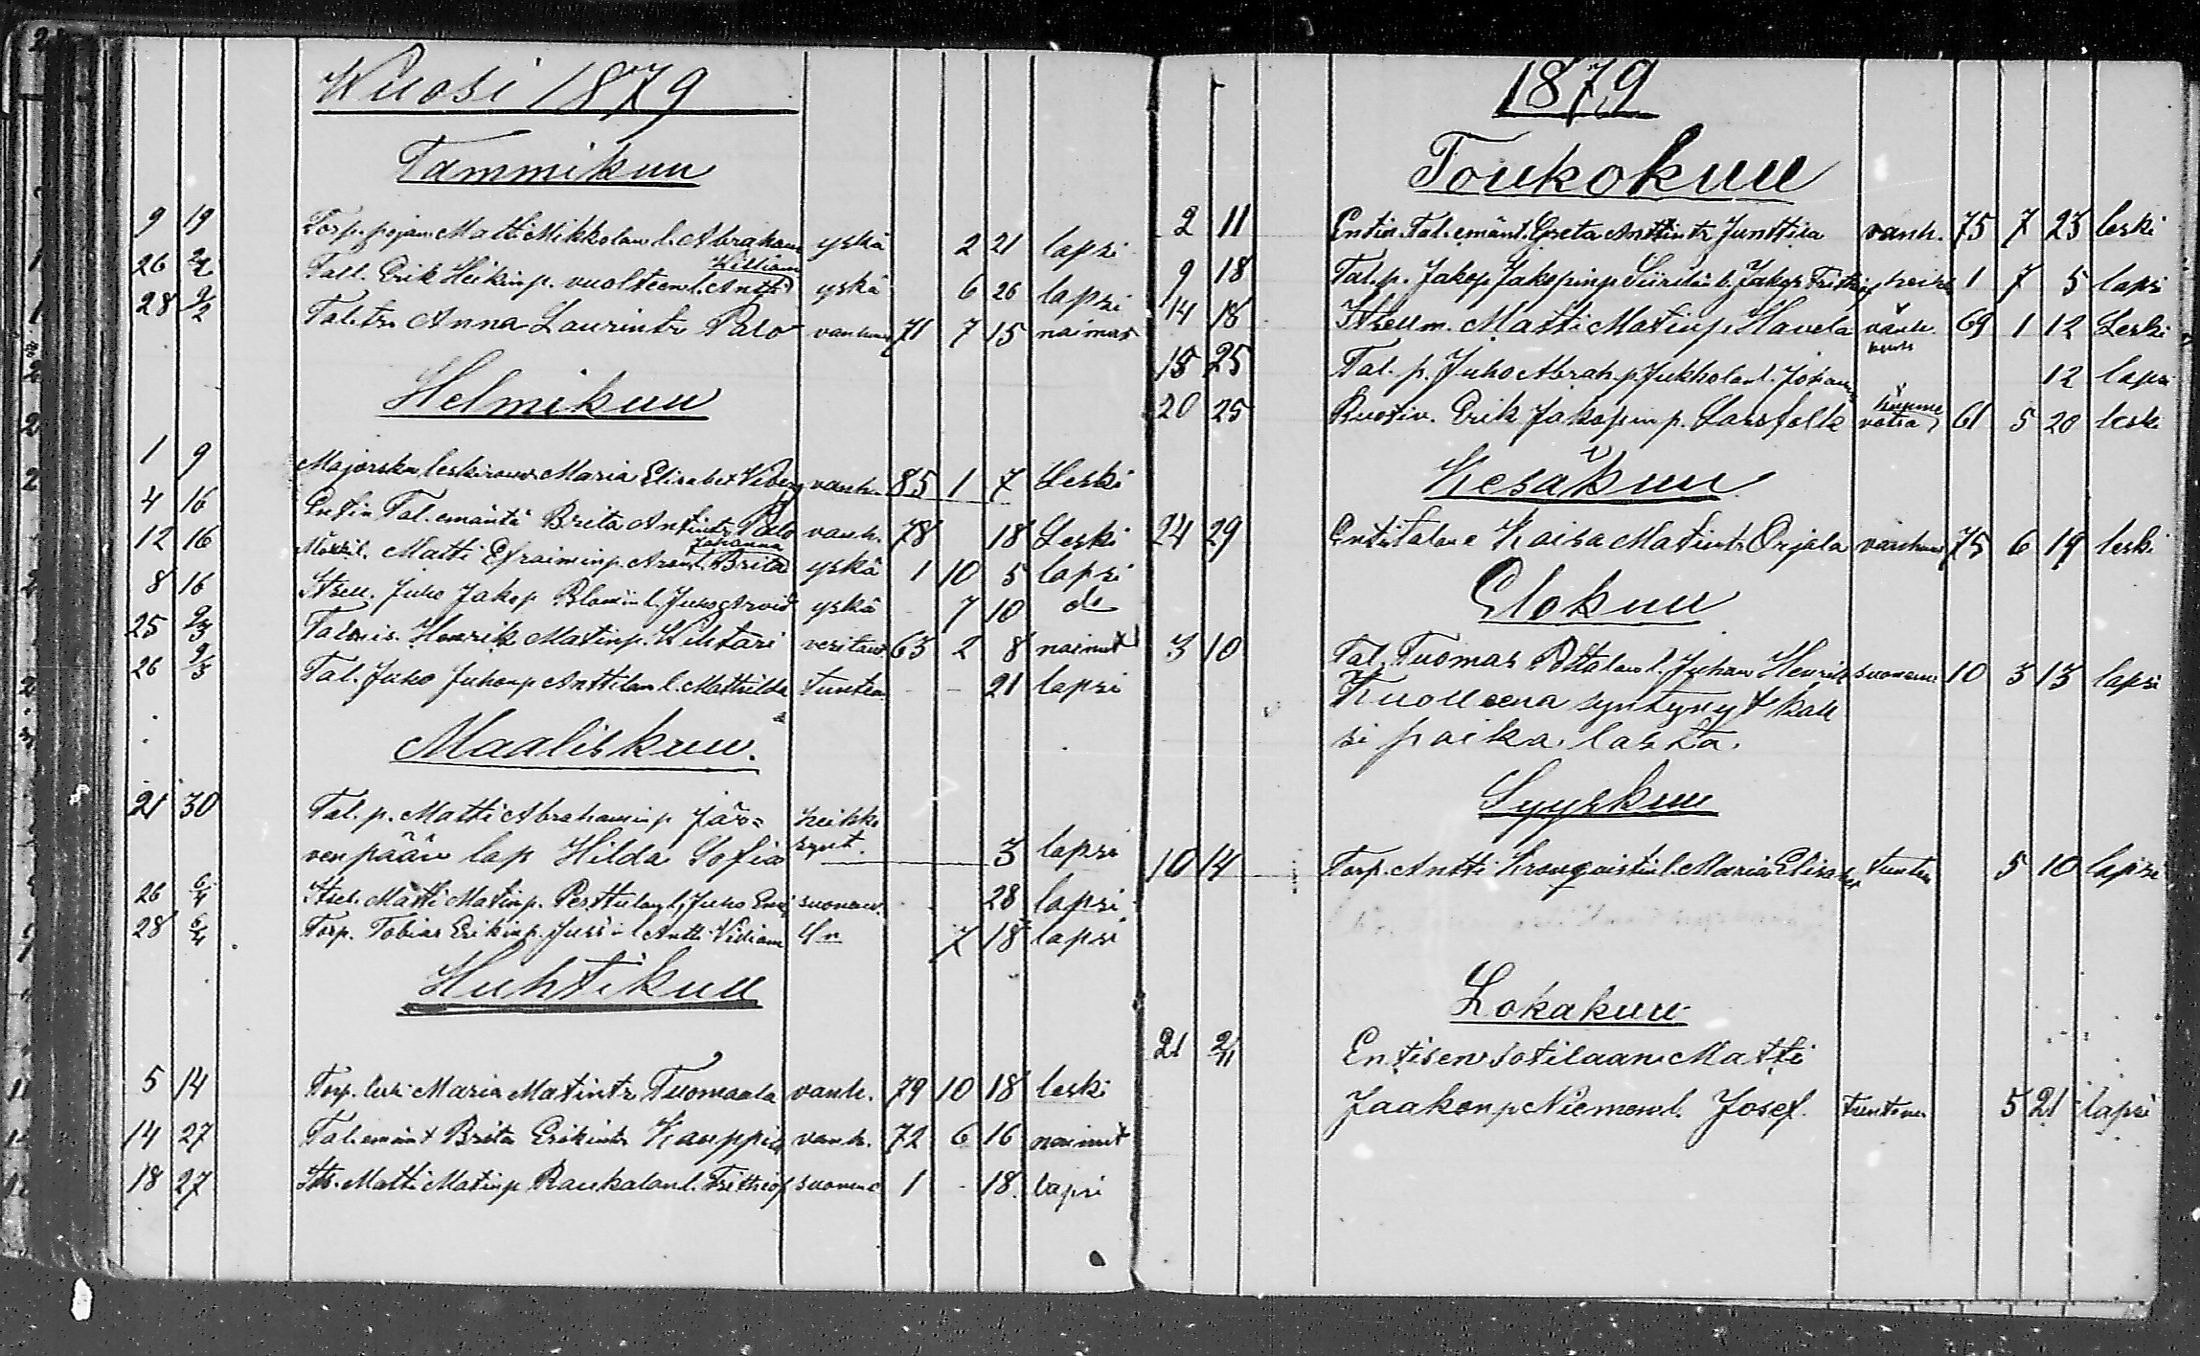 Wuosi 1879
Tammikuu
9 19 Torp. pojan Matti Mikkolan l. Abraham yskä 2 21 lapsi
William
26 2/2 Tall. Erik Heikinp. vuolteenl. Antti yskä 6 26 lapsi
28 2/2 Tal. tr Anna Laurintr Palo vanhuus 71 7 15 naimat
Helmikuu
1 9 leskirouva Maria Elisabet vanh. 85 1 7 Leski
4 16 Entin Tal. emäntä Brita Antintr Palo vanh. 78 18 Leski
Johanna
12 16 Mökkil. Matti Efraiminp. Brita yskä 1 10 5 lapsi
8 16 Itsell. Juho Jakop l. Juho Arvid yskä 7 10 do
25 2/3 Henrik Matinp. 63 2 8 naimut
26 2/3 Tal. Juho Juhonp Anttilan l. Mathilda Tuntem 21 lapsi
Maaliskuu.
21 30 Tal. p. Matti Abrahaminp Jär= heikko
venpään lap Hilda Sofia synt. 3 lapsi
26 6/4 Itsel. Matti Matinp. Perttulan l. Juho suonenv. 28 lapsi
28 6/4 Torp. Tobias Erikinp. l Antti Viliam 7 18 lapsi
Huhtikuu
5 14 Torp. leski Maria Matintr Tuomaala vanh. 79 10 18 leski
14 27 Tal. emänt Brita Erikintr Kauppila vanh. 72 6 16 naimut
18 27 Its. Matti Matinp Raukalan l. Frithiof suonenv 1 - 18. lapsi
1879
Toukokuu
2 11 Entin. Tal. emänt. Greta Anttintr Junttila vanh. 75 7 23 leski
9 18 Tal. p. Jakop Jakopinp l. Jakop 1 7 5 lapsi
14 18 Itsellm. Matti Matinp. Havela vanh. 69 1 12 Leski
18 25 Tal. p. Juho Abrah. p. l. Johannes 12 lapsi
20 25 Ruotiv. Erik Jakopinp. Larsfolk vatsa 61 5 20 leski
Kesäkuu
24 29 Kaisa Matintr Orjala vanhuus 75 6 19 leski
Elokuu
3 10 Tal. Tuomas l. Juhan Henrik suonenv 10 3 13 lapsi
Kuolleena syntynyt kak
si poika. lasta.
Syyskuu
10 14 Torp. Antti Kronqvistin l. Maria Elisabet tuntem 5 10 lapsi
Lokakuu
21 2/11 Entisen sotilaan Matti
Jaakonp Niemen l. Josef. tuntem 5 21 lapsi